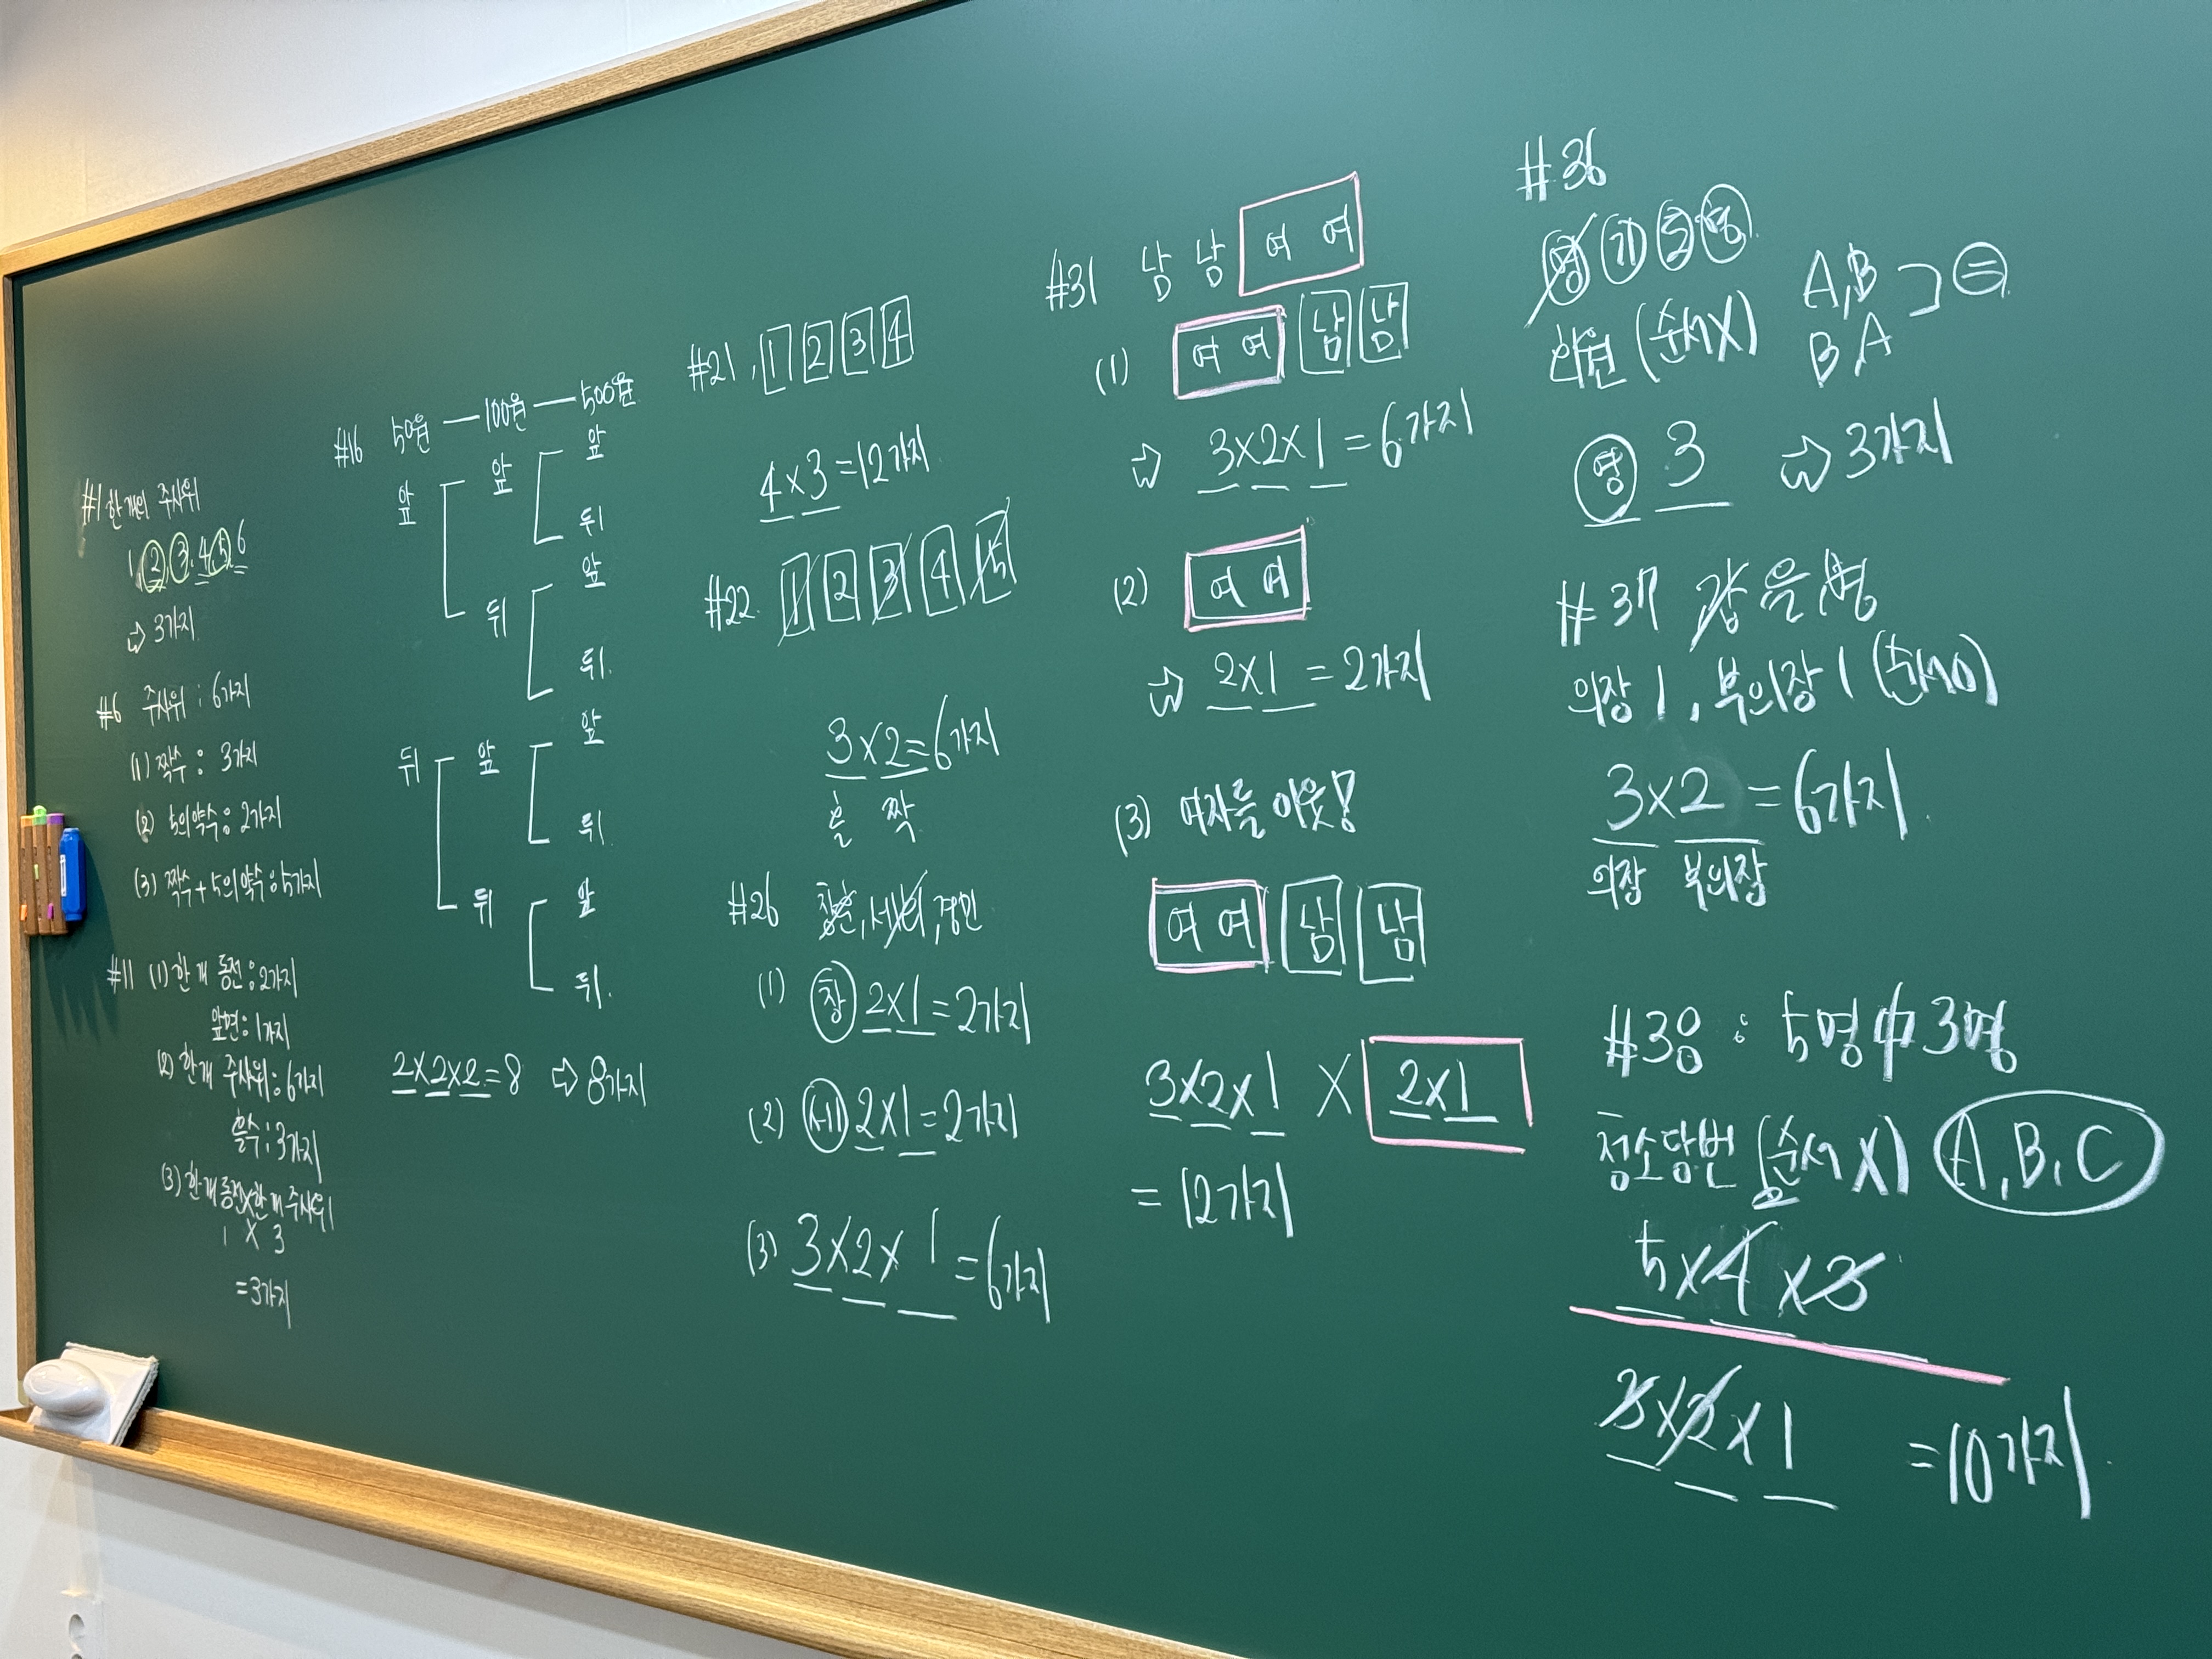 #1 한 개의 주사위
1, 2, 3, 4, 5, 6
⇨ 3가지
#6 주사위 : 6가지
(1) 짝수 : 3가지
(2) 5의 약수 : 2가지
(3) 짝수 + 5의 약수 : 5가지
#11 (1) 한 개 동전 : 2가지
앞면 : 1가지
(2) 한개 주사위 : 6가지
홀수 : 3가지
(3) 한개 동전 × 한개 주사위
1 × 3
= 3가지
#16 50원 — 100원 — 500원
앞 앞 앞
뒤
뒤 앞
뒤.
뒤 앞 앞
뒤.
뒤 앞
뒤.
2×2×2=8 ⇨ 8가지
#21. 1 2 3 4
4×3=12가지
#22. 1 2 3 4 5
3×2=6가지
홀 짝
#26 , 경민
(1) 창 2×1=2가지
(2) 세 2×1=2가지
(3) 3×2×1=6가지
#31 남 남 여 여
(1) 여 여 남 남
⇨ 3×2×1=6가지
(2) 여 여
⇨ 2×1=2가지
(3) 여자를 이웃!
여 여 남 남
3×2×1 × 2×1
= 12가지
#36
영 기
(순서X) A,B
BA =
영 3 ⇨ 3가지
#37 갑 을 병
의장 1, 부의장 1 (순서O)
3×2=6가지
의장 부의장
#38 : 5명 中 3명
청소당번 (순서X) A, B, C
5×4×3
3×2×1 =10가지.